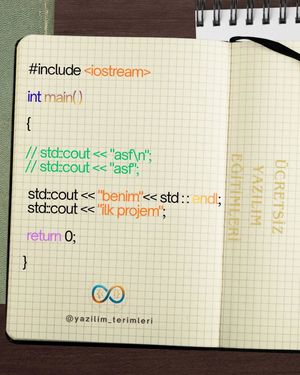 #include <iostream>
int main( )
{
// std::cout << "asf\n";
// std::cout << "asf";
std::cout << "benim"<< std : : endl;
std::cout << "ilk projem";
return 0;
}
@yazilim_terimleri
ÜCRETSİZ
YAZILIM
EĞİTİMLERİ